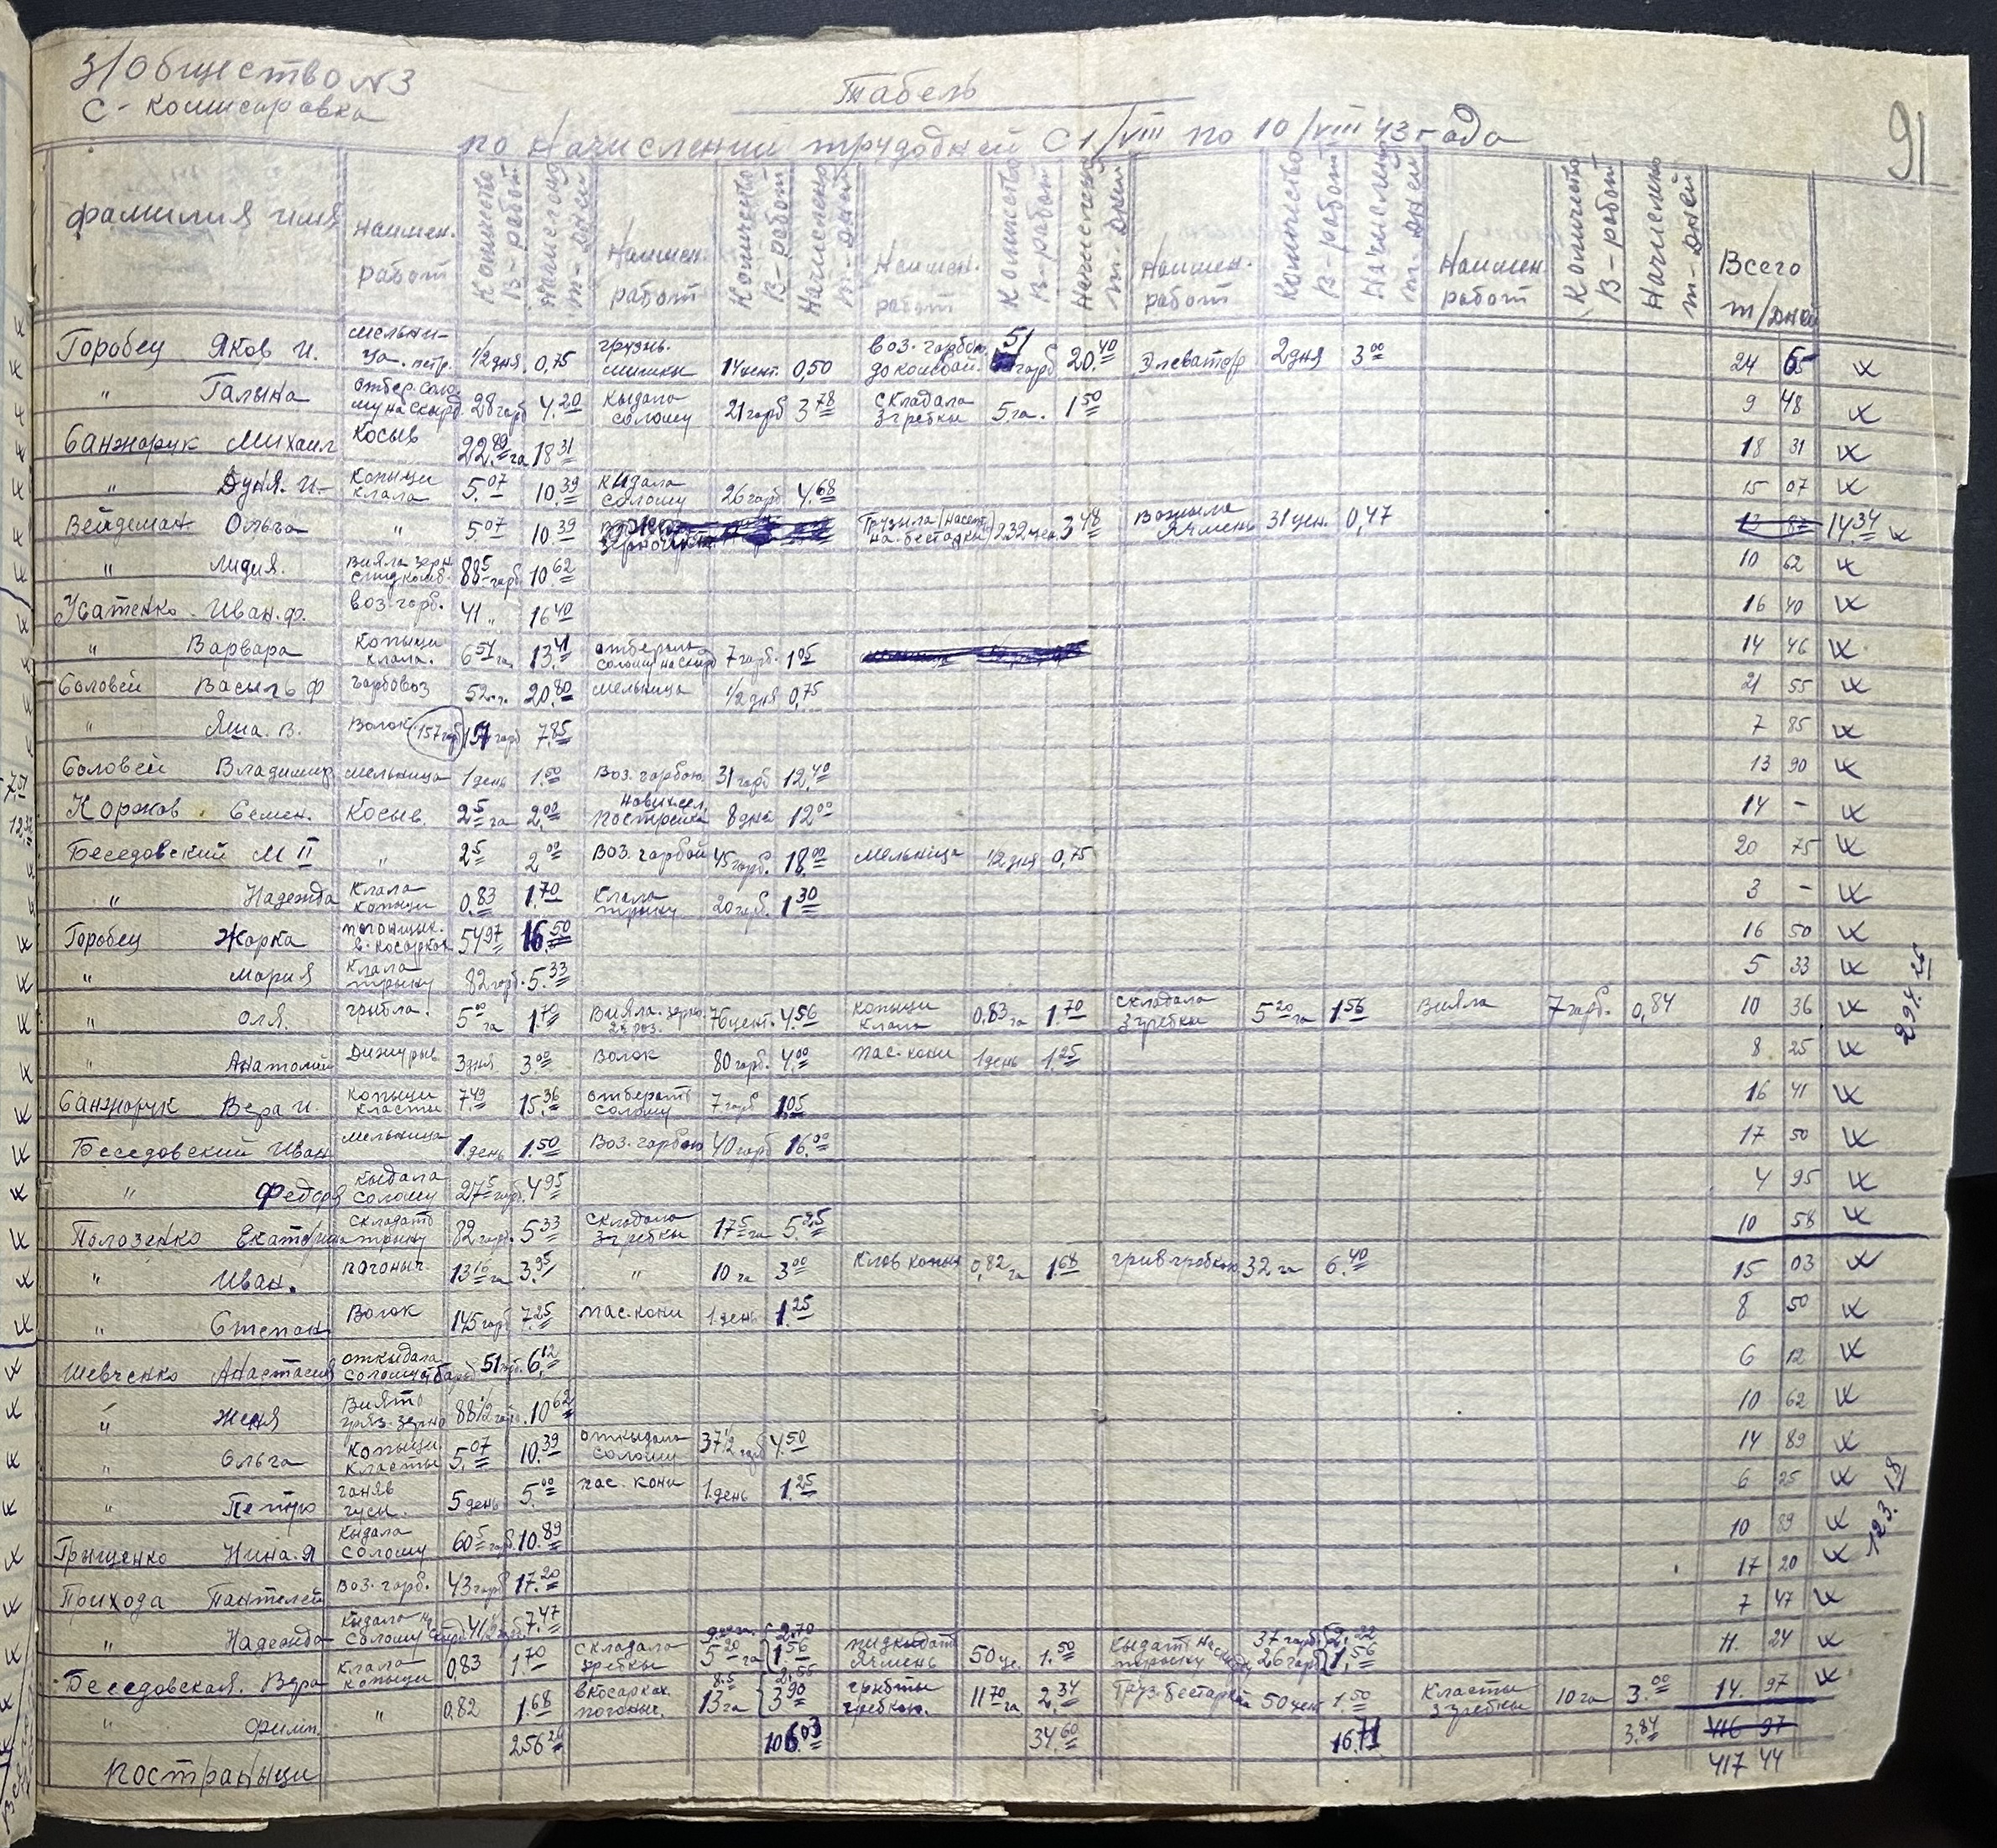 З/Общество №3
С-Комисаровка
Табель
по Начислении трудодней С 1/VIII по 10/VIII 43 года
91
фамилия имя Наимен. работ Количество В-работ Начислено т-дней Наимен. работ Количество В-работ Начислено т-дней Наимен. работ Количество В-работ Начислено т-дней Наимен. работ Количество В-работ Начислено т-дней Наимен. работ Количество В-работ Начислено т-дней Всего т/дней
Горобец Яков И. мельница 1/2 дня 0,75 14 цент. 0,50 воз. гарбою 51 гарб 20.40 Элеватор 2 дня 3 00 24 65
" Галына 28 гарб 4.20 Кыдала солому 21 гарб 3 78 Складала Згребки 5 га. 1 50 9 48
Санжарук Михаил Косыв 22.89 га 18 31 18 31
" Дуня. И- Копыци клала 5.07 10.39 Кыдала солому 26 гарб 4.68 15 07
Вейдеман Ольга " 5.07 10.39 Грузыла 232 цен. 3 48 Возыла Ячмень 31 цен. 0,47 14.34
" Лидия. Вияла зерн 88 5 гарб 10 62 10 62
Усатенко Иван. Ф. воз. гарб. 41 " 16 40 16 40
" Варвара Копыци клала. 6 54 га 13.41 отберала солому на скирд 7 гарб. 1 05 14 46
Соловей Васыль Ф гарбовоз 52 " 20.80 мельница 1/2 дня 0,75 21 55
" Яша. В. Волок 157 гарб 157 гарб 7.85 7 85
Соловей Владимир мельница 1 день 1.50 Воз. гарбою 31 гарб 12.40 13 90
Коржов Семен. Косыв. 2 5 га 2.00 постройка 8 дней 12 00 14 -
Беседовский М II " 2 5 2 00 Воз. гарбой 45 гарб. 18.00 мельница 1/2 дня 0,75 20 75
" Надежда Клала копыци 0,83 1.70 Клала трыну 20 гарб. 1 30 3 -
Горобец Жорка погоныч. 54 97 16.50 16 50
" Мария Клала трыну 82 гарб. 5.33 5 33
" Оля. грибла. 5 00 га 1.70 Вияла зерно 76 цент. 4.56 копыци клала 0,83 га 1.70 складала Згребки 5 20 га 1.56 Вияла 7 гарб. 0,84 10 36
" Анатолий Дижурыв 3 дня 3.00 Волок 80 гарб. 4.00 пас. кони 1 день 1.25 8 25
Санжарук Вера И. Копыци класты 7.49 15.36 отберать солому 7 гарб 1.05 16 41
Беседовский Иван мельница 1 день 1.50 Воз. гарбою 40 гарб 16.00 17 50
" Федора Кыдала солому 27 5 гарб. 4 95 4 95
Полозенко Екатерина складать трыну 82 гарб. 5.33 складала Згребки 17 5 га 5.25 10 58
" Иван. погоныч 13 16 га 3.95 " 10 га 3 00 Клав копыц 0,82 га 1.68 грив гребкою 32 га 6.40 15 03
" Степан Волок 145 гарб 7.25 пас. кони 1 день 1.25 8 50
Шевченко Анастасия откыдала солому 51 гарб. 6.12 6 12
" Женя Виять зерно 88 1/2 гарб. 10 62 10 62
" Ольга Копыци класты 5.07 10.39 откыдала солому 37 1/2 гарб 4.50 14 89
" Петро ганяв гуси. 5 день 5.00 пас. кони 1 день 1.25 6 25
Грыщенко Нина. Я Кыдала солому 60 5 гарб. 10.89 10 89
Прихода Пантелей Воз. гарб. 43 гарб 17.20 17 20
" Надежда Кыдала солому 41 1/2 7.47 7 47
Беседовская. Вера Клала копыци 0,83 1.70 складала зребки 5 20 га 1.56 ячмень 50 це. 1.50 37 гарб. 2,22 26 гарб 1.56 11. 24
" Филип. " 0.82 1.68 в косарках погоныч. 13 га 3.90 грибты гребкою. 11 70 га 2.34 50 цен 1.50 Класты Згребки 10 га 3.00 14. 97
256 26 106.03 34.60 16.71 3.84 416 97
Постраныци 417 44
291.26
123.18